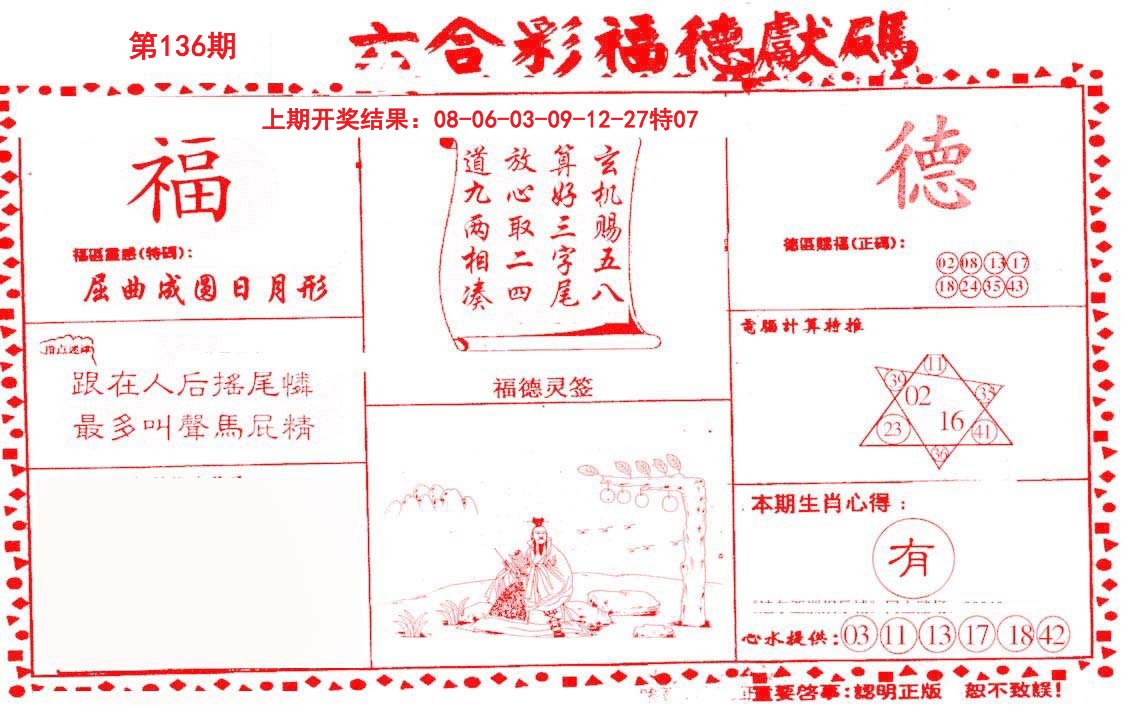 第136期
六合彩福德獻碼
上期开奖结果：08-06-03-09-12-27特07
福
福區靈感(特碼)：
屈曲成圓日月形
跟在人后搖尾憐
最多叫聲馬屁精
玄机赐五八
算好三字尾
放心取二四
道九两相凑
福德灵签
德
德區賜福(正碼)：
02 08 13 17
18 24 35 43
電腦計算特推
11
39 02 35
23 16 41
36
本期生肖心得：
有
心水提供：03 11 13 17 18 42
重要啓事：認明正版 恕不致誤！